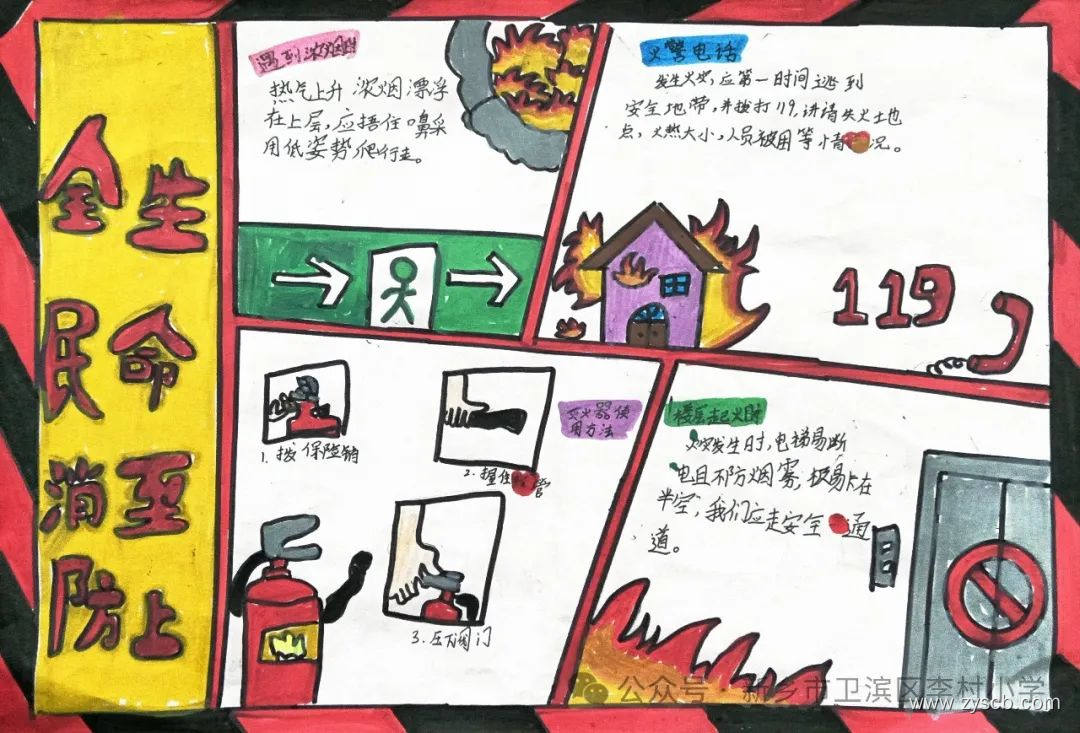 全民消防
生命至上
遇到浓烟时
热气上升 浓烟漂浮
在上层,应捂住嘴采
用低姿势爬行走。
火警电话
发生火灾,应第一时间逃到
安全地带,并拨打119,讲清失火地
点,火热大小,人员被困等情况。
119
灭火器使
用方法
1. 拔保险销
2. 握住 管
3. 压阀门
楼层起火时
火灾发生时,电梯易断
电且不防烟雾,极易卡在
半空,我们应走安全通
道。
公众号·新乡市卫滨区李村小学
www.zyscb.com